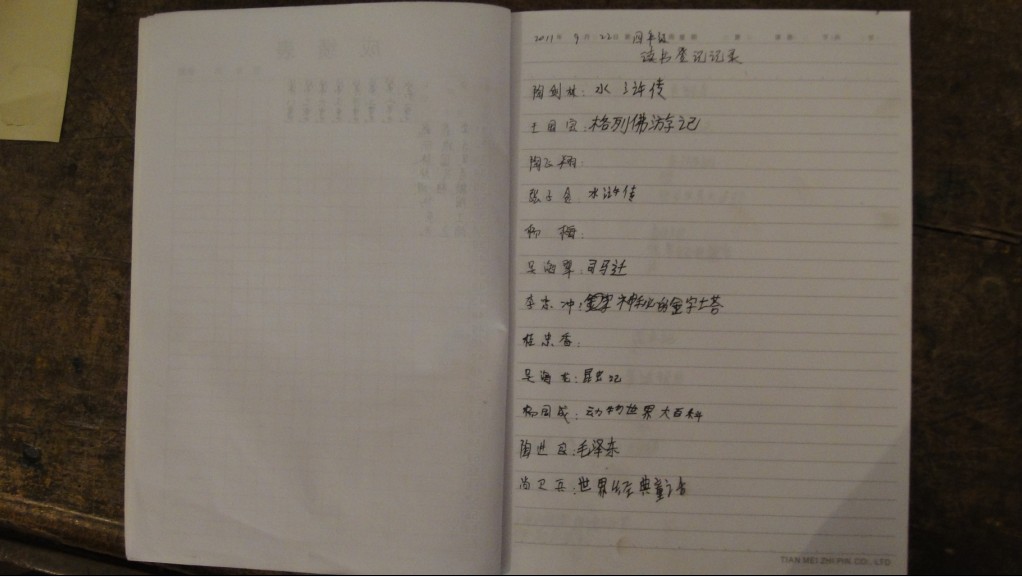 2011年 9月 22日 四年级
读书登记记录
陶剑林：水浒传
王国宝：格列佛游记
陶云翔：
张子色：水浒传
杨梅：
吴海翠：司马迁
李忠冲：神秘的金字塔
桂忠香：
吴海龙：昆虫记
杨国成：动物世界大百科
陶进良：毛泽东
尚卫兵：世界经典童话
TIAN MEI ZHI PIN CO., LTD